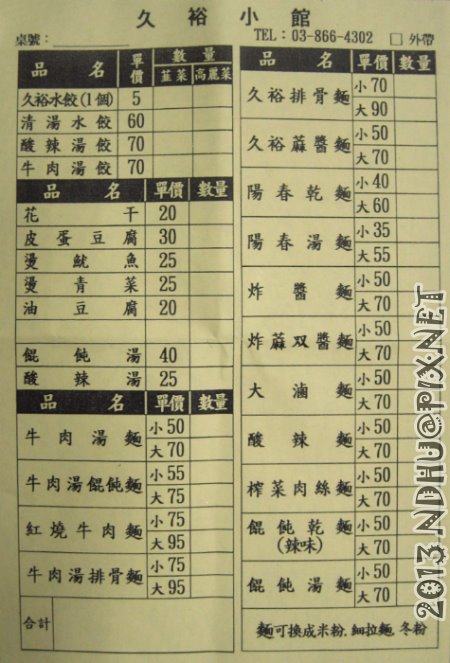 久裕小館
桌號：
TEL：03-866-4302 □ 外帶
品名 單價 數量
韮菜 高麗菜
久裕水餃(1個) 5
清湯水餃 60
酸辣湯餃 70
牛肉湯餃 70
品名 單價 數量
花干 20
皮蛋豆腐 30
燙魷魚 25
燙青菜 25
油豆腐 20
餛飩湯 40
酸辣湯 25
品名 單價 數量
牛肉湯麵 小50
大70
牛肉湯餛飩麵 小55
大75
紅燒牛肉麵 小75
大95
牛肉湯排骨麵 小75
大95
合計
品名 單價 數量
久裕排骨麵 小70
大90
久裕蔴醬麵 小50
大70
陽春乾麵 小40
大60
陽春湯麵 小35
大55
炸醬麵 小50
大70
炸蔴双醬麵 小50
大70
大滷麵 小50
大70
酸辣麵 小50
大70
榨菜肉絲麵 小50
大70
餛飩乾麵 小50
(辣味) 大70
餛飩湯麵 小50
大70
麵可換成米粉. 細拉麵. 冬粉
2013.NDHU@PIXNET